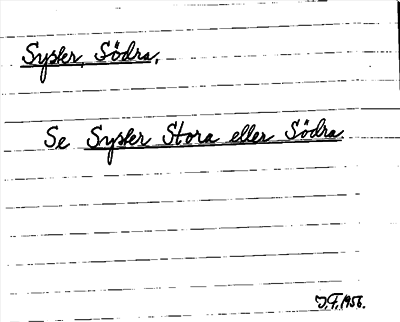 Sysler, Södra,
Se Sysler Stora eller Södra
T.F. 1956.